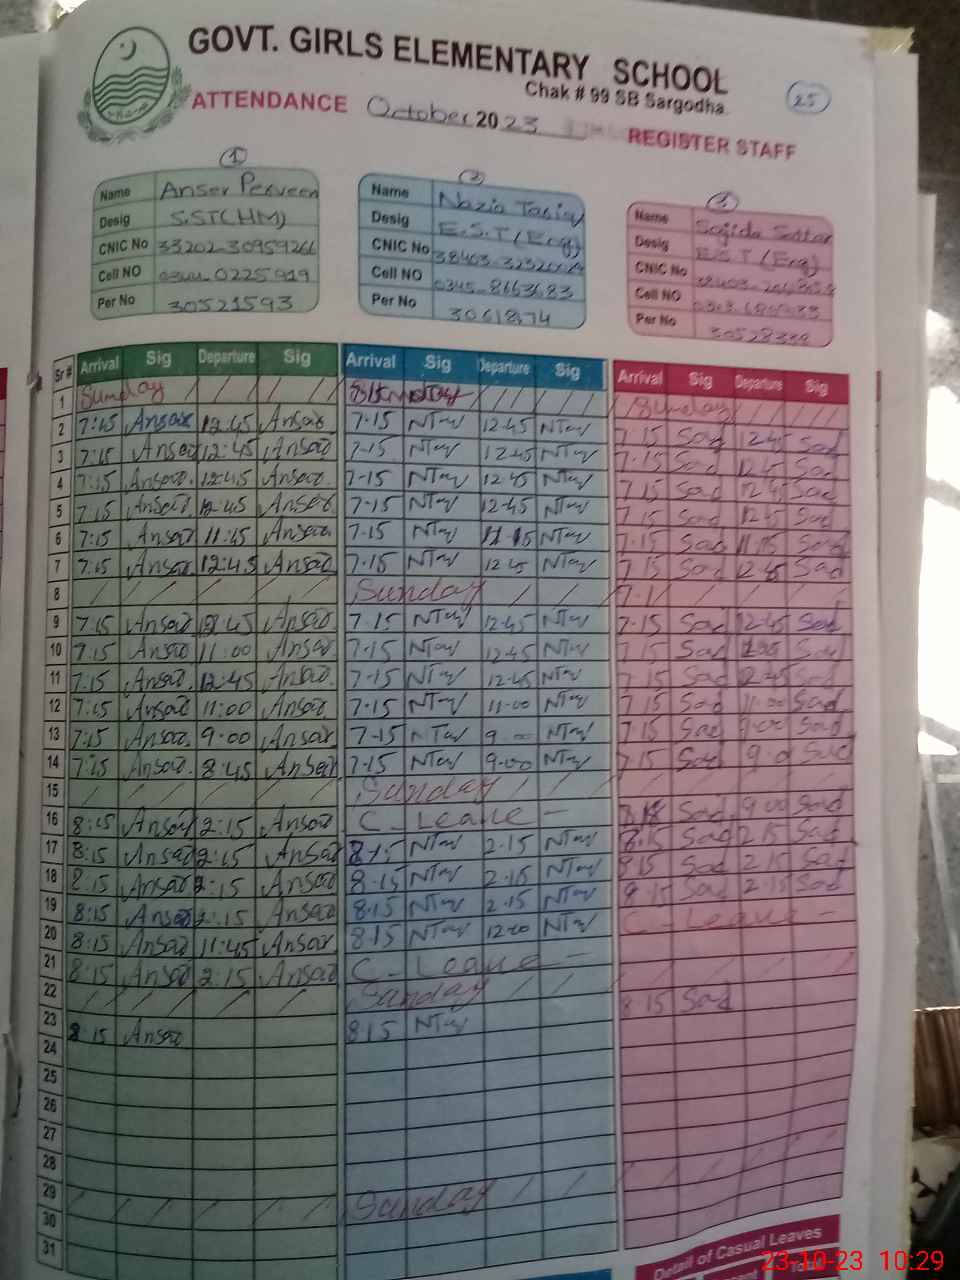 GOVT. GIRLS ELEMENTARY SCHOOL
Chak # 99 SB Sargodha.
25
ATTENDANCE October 2023 REGISTER STAFF
1
Name Anser Perveen
Desig S.ST(HM)
CNIC No 33202-30959266
Cell NO 0225919
Per No 30521593
2
Name Nazia
Desig E.S.T (Eng)
CNIC No 38403-
Cell NO 0345-8663683
Per No 30618174
3
Name Sajida Sattar
Desig E.S.T (Eng)
CNIC No 38403-
Cell NO
Per No
Sr # Arrival Sig Departure Sig Arrival Sig Departure Sig Arrival Sig Departure Sig
1 Sunday Sunday
2 7:15 Ansar 12:45 Ansar 7-15 NTay 12-45 NTay 7-15 Sad 12-45 Sad
3 7:15 Ansar 12:45 Ansar 7-15 NTay 12-45 NTay 7-15 Sad 12-45 Sad
4 7:15 Ansar 12:45 Ansar 7-15 NTay 12-45 NTay 7-15 Sad 12-45 Sad
5 7:15 Ansar 12:45 Ansar 7-15 NTay 12-45 NTay 7-15 Sad 12-45 Sad
6 7:15 Ansar 11:45 Ansar 7-15 NTay 11-15 NTay 7-15 Sad 11-15 Sad
7 7:15 Ansar 12:45 Ansar 7-15 NTay 12-45 NTay 7-15 Sad 12-45 Sad
8 Sunday
9 7:15 Ansar 12:45 Ansar 7-15 NTay 12-45 NTay 7-15 Sad 12-45 Sad
10 7:15 Ansar 11:00 Ansar 7-15 NTay 12-45 NTay 7-15 Sad Sad
11 7:15 Ansar 12:45 Ansar 7-15 NTay 12-45 NTay 7-15 Sad 12-45 Sad
12 7:15 Ansar 11:00 Ansar 7-15 NTay 11-00 NTay 7-15 Sad 11-00 Sad
13 7:15 Ansar 9:00 Ansar 7-15 NTay 9-00 NTay 7-15 Sad 9-00 Sad
14 7:15 Ansar 8:45 Ansar 7-15 NTay 9-00 NTay 7-15 Sad 9-0 Sad
15 Sunday
16 8:15 Ansar 2:15 Ansar C-Leave - Sad 9 00 Sad
17 8:15 Ansar 2:15 Ansar 8-15 NTay 2-15 NTay 8-15 Sad 2-15 Sad
18 8:15 Ansar 2:15 Ansar 8-15 NTay 2-15 NTay 8-15 Sad 2-15 Sad
19 8:15 Ansar 2:15 Ansar 8-15 NTay 2-15 NTay 8-15 Sad 2-15 Sad
20 8:15 Ansar 11:45 Ansar 8-15 NTay NTay C-Leave -
21 8:15 Ansar 2:15 Ansar C-Leave -
22 Sunday
23 8:15 Ansar 8-15 NTay 8-15 Sad
24
25
26
27
28
29 Sunday
30
31
Detail of Casual Leaves
23-10-23 10:29